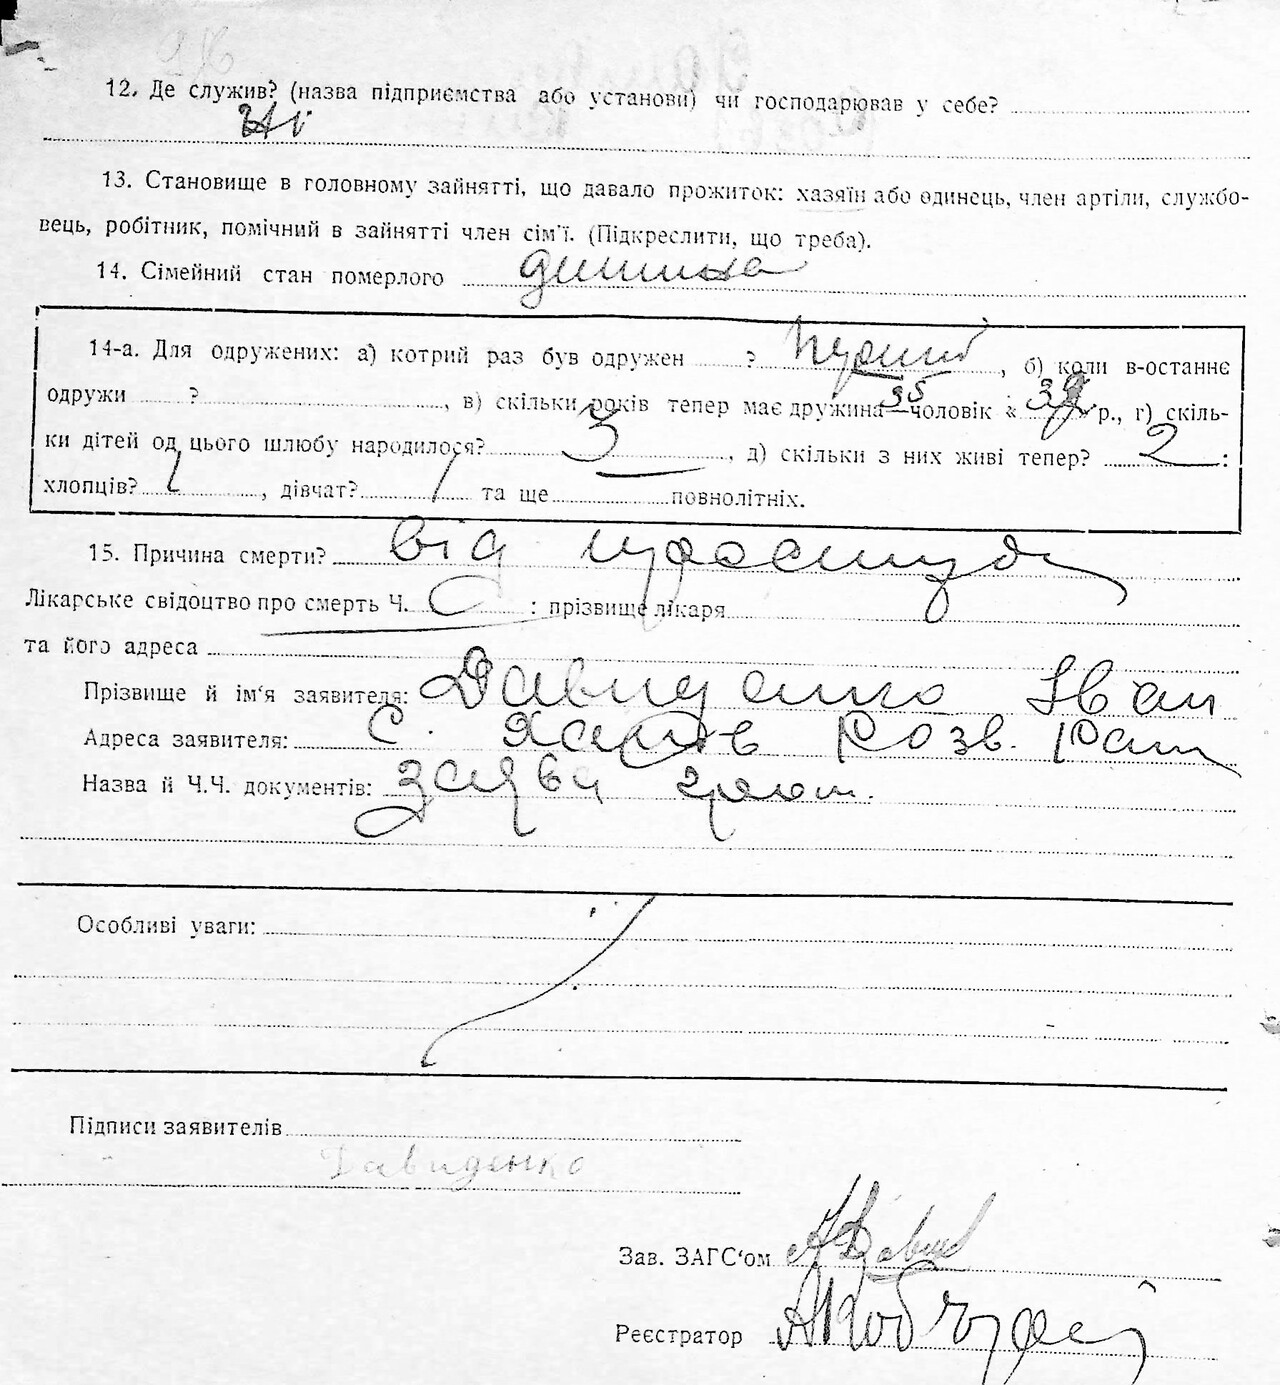 12. Де служив? (назва підприємства або установи) чи господарював у себе?
Ні
13. Становище в головному зайнятті, що давало прожиток: хазяїн або одинець, член артіли, службо-
вець, робітник, помічний в зайнятті член сім'ї. (Підкреслити, що треба).
14. Сімейний стан померлого дитина
14-а. Для одружених: а) котрий раз був одружен ? перший, б) коли в-останнє
одружи ? , в) скільки років тепер має дружина 35 чоловік « р., г) скіль-
ки дітей од цього шлюбу народилося? 3, д) скільки з них живі тепер? 2 :
хлопців? 1, дівчат? 1 та ще повнолітніх.
15. Причина смерти? від
Лікарське свідоцтво про смерть Ч. : прізвище лікаря
та його адреса
Прізвище й ім'я заявителя: Давиденко Іван
Адреса заявителя: с. Розв. Рай
Назва й Ч.Ч. документів: заява
Особливі уваги:
Підписи заявителів
Давиденко
Зав. ЗАГС'ом
Реєстратор